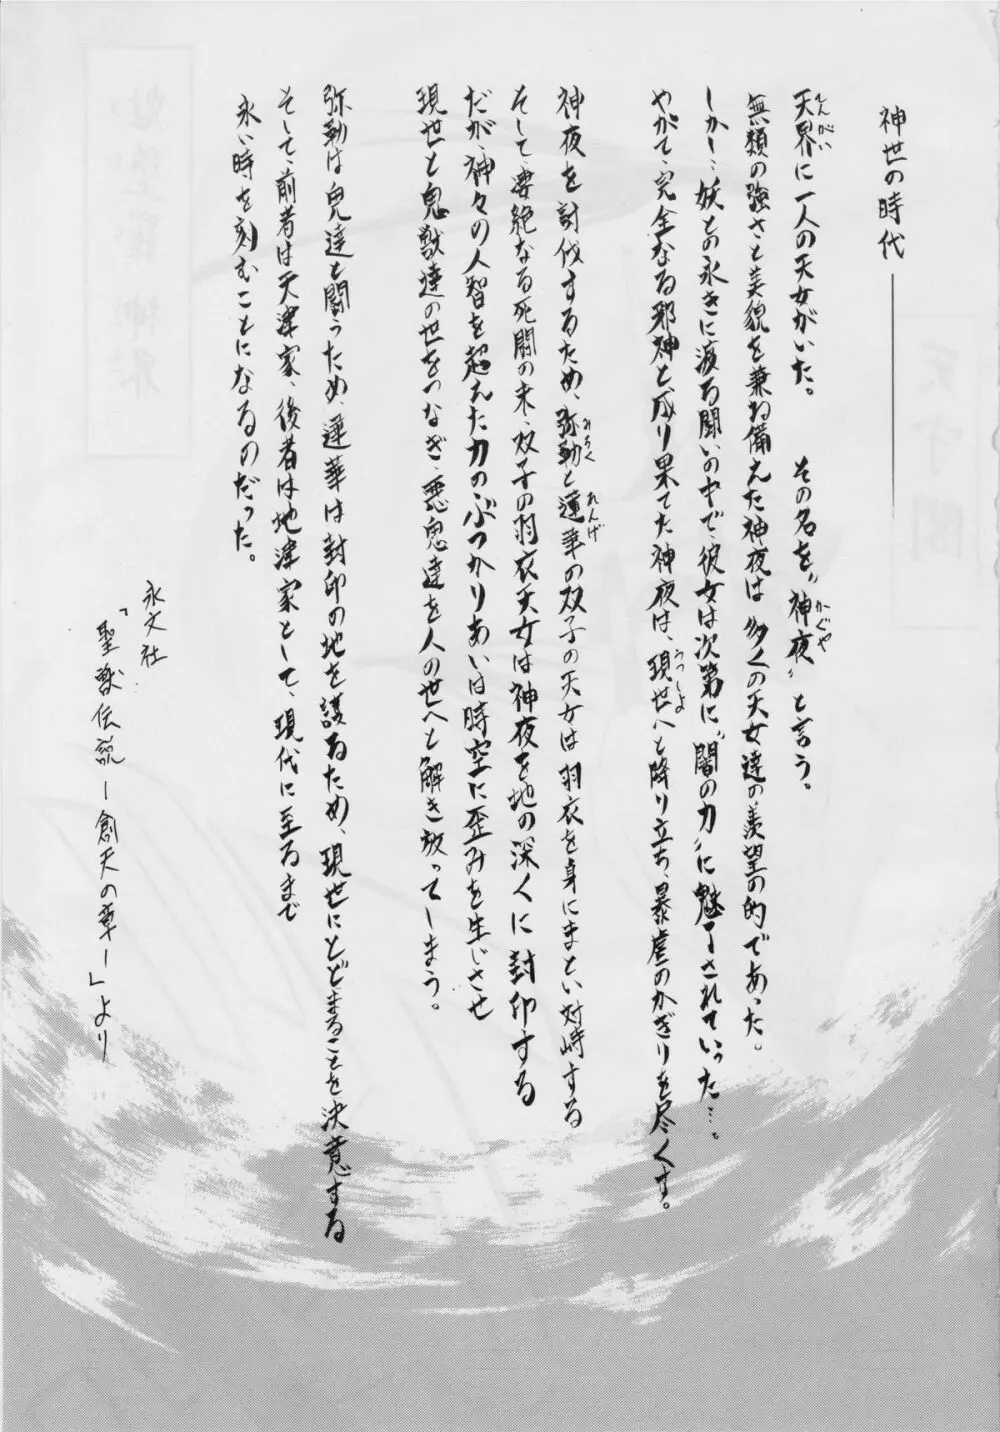 神世の時代――――
天界に一人の天女がいた。　その名を〝神夜〟と言う。
無類の強さと美貌を兼ね備えた神夜は多くの天女達の羨望の的であった。
しかし、妖との永きに渡る闘いの中で、彼女は次第に〝闇の力〟に魅了されていった…。
やがて、完全なる邪神と成り果てた神夜は、現世へと降り立ち、暴虐のかぎりを尽くす。
神夜を討伐するため、弥勒と蓮華の双子の天女は羽衣を身にまとい対峙する
そして、凄絶なる死闘の末、双子の羽衣天女は神夜を地の深くに封印する
だが、神々の人智を超えた力のぶつかりあいは時空に歪みを生じさせ
現世と鬼獣達の世をつなぎ、悪鬼達を人の世へと解き放ってしまう。
弥勒は鬼達と闘うため、蓮華は封印の地を護るため、現世にとどまることを決意する
そして、前者は天津家、後者は地津家として、現代に至るまで
永い時を刻むことになるのだった。
永文社
「聖獣伝説ー創天の章ー」より